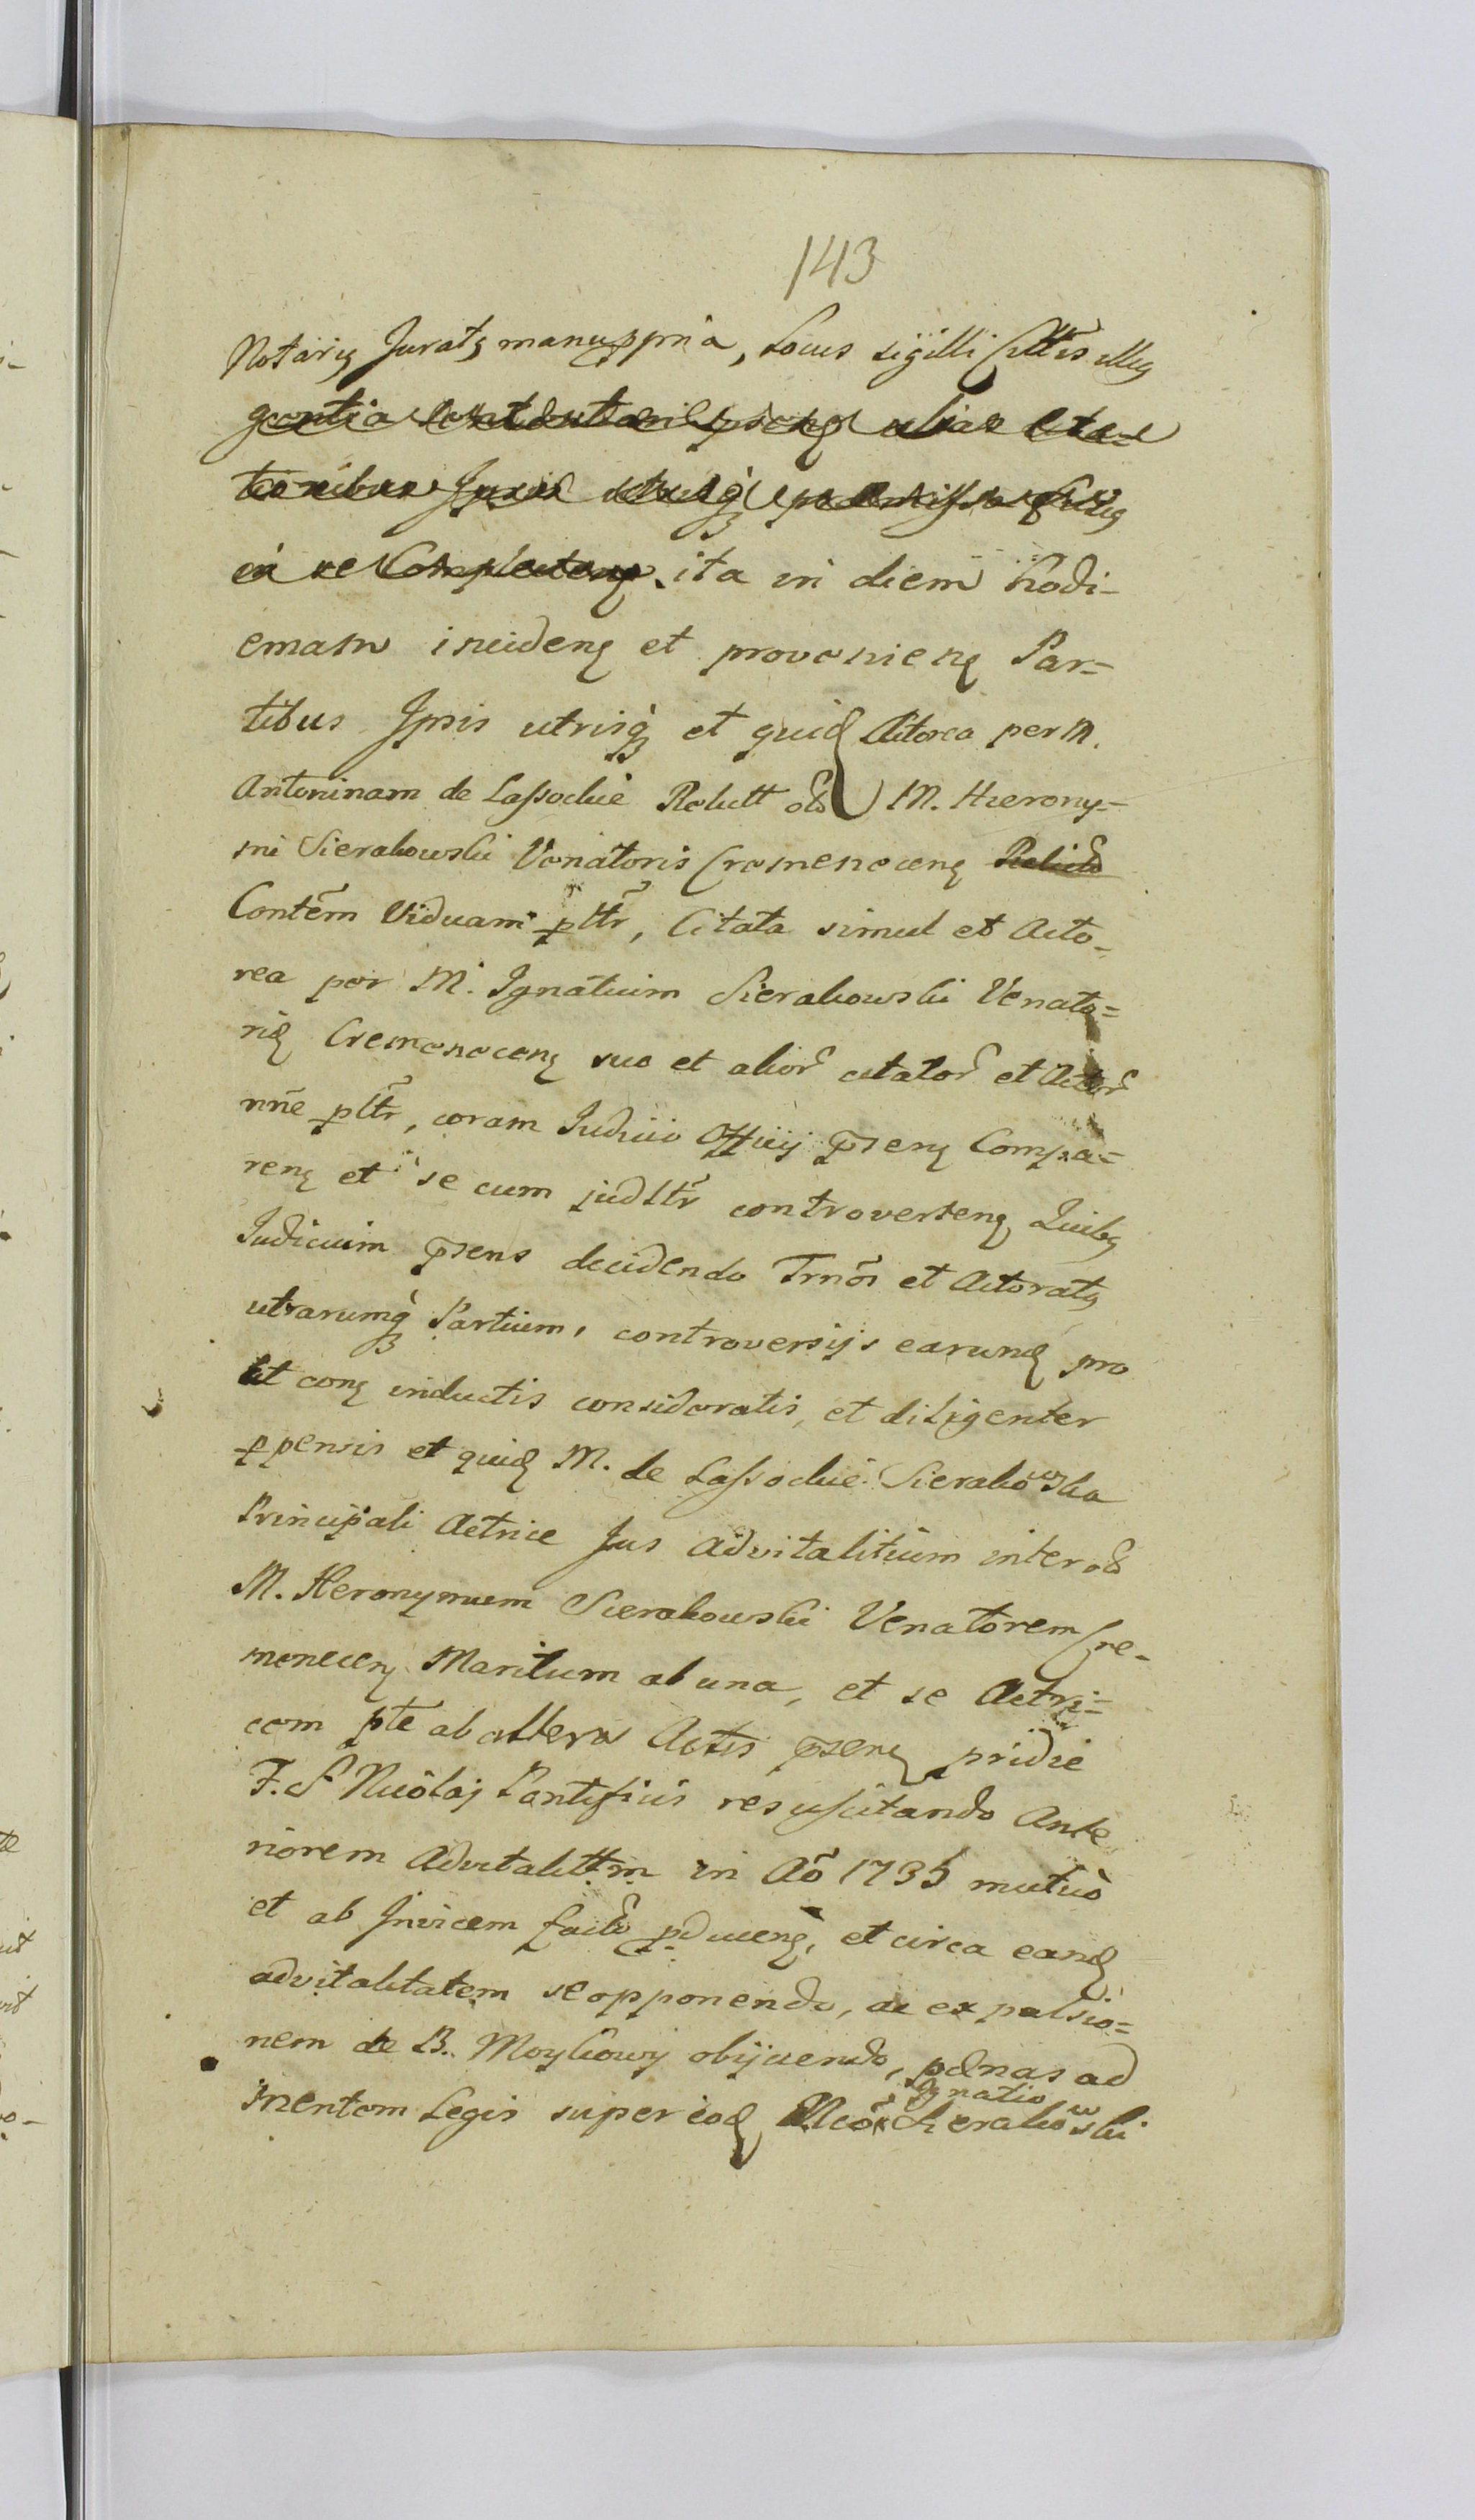 143
Notariꝯ Juratꝯ manuppria, Locus sigilli
ita in diem hodi-
emam incidenꝫ et provenienꝫ Par=
tibus Ipsis utrisq̀ et quid Actorea per M.
Antoninam de Lassockie Relictt olδ M. Hierony=
mi Sierakowski Venatoris Cremenecenꝫ
Contem̃ Viduam pltr̃, Citata simul et Acto-
rea per M. Ignatium Sierakowski Venato=
rid Cremenecenꝫ suo et alior̃ citator̃ et Actor̃
nñe pltr̃, coram Judicio Officij p̃senꝫ Compa=
renꝫ et se cum judltr̃ controvertenꝫ Quibꝯ
Judicium p̃sens decidendo Trnõs et Actoratꝯ
utrarumq̀ Partium, controversijs earund pro
ut conꝫ inductis consideratis, et diligenter
ppensis et quid M. de Lassockie Sierakowska
Principali Actrice Jus advitalitium inter olδ
M. Heronymum Sierakowski Venatorem Cre-
menecenꝫ Maritum ab una, et se Actri=
cem pte ab altera Actis p̃senꝫ pridie
F. S Nicolaj Pontificis resuscitando Ante
riorem Advitalittm in Aõ 1735 mutuò
et ab Invicem fact pducenꝫ, et circa eand
advitalitatem se opponendo, ac expulsio=
nem de B. Moykowy obijciendo, pænas ad
mentem Legis super eod Ignatio Sierakowski